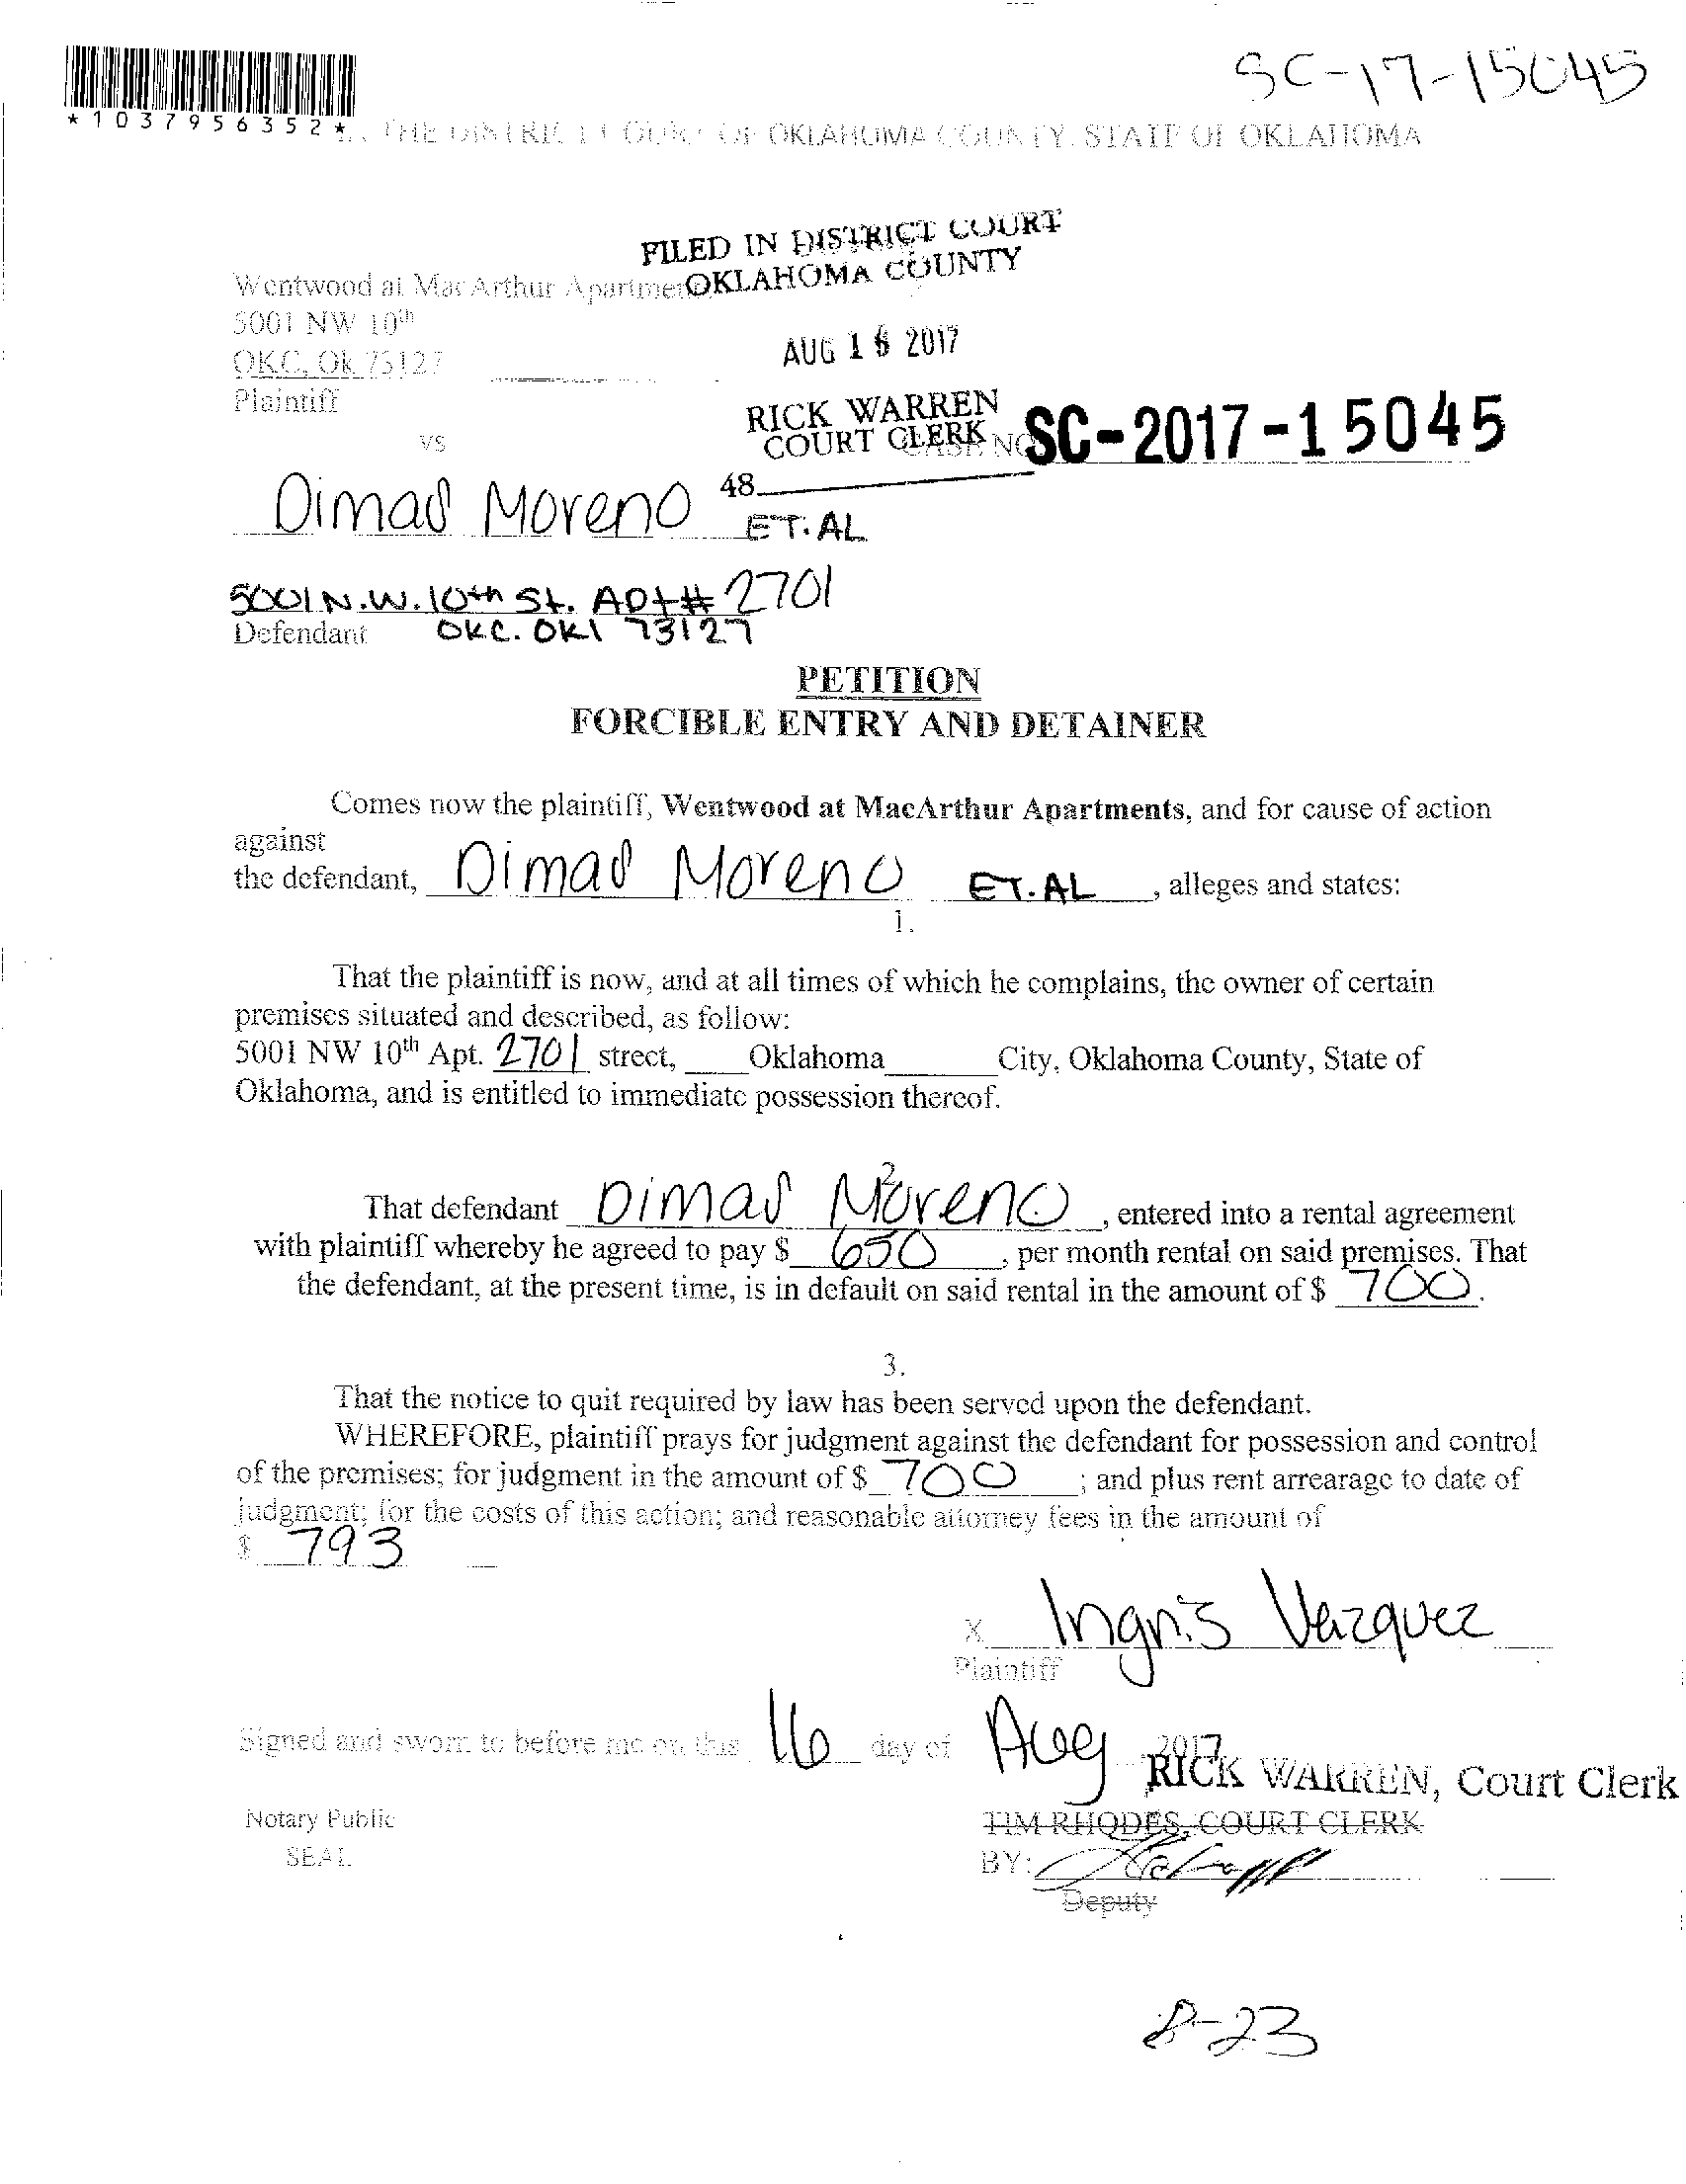 SC-17-15045
*1037956352*
THE DISTRICT COURT OF OKLAHOMA COUNTY, STATE OF OKLAHOMA
FILED IN DISTRICT COURT
OKLAHOMA COUNTY
Wentwood at MacArthur Apartmen
5001 NW 10th
AUG 16 2017
OKC, Ok 73127
Plaintiff
RICK WARREN
COURT CLERK
vs
CASE NO SC-2017-15045
48
Dimas Moreno ET.AL
5001 N.W. 10th St. Apt# 2701
Defendant OKC. OKl 73127
PETITION
FORCIBLE ENTRY AND DETAINER
Comes now the plaintiff, Wentwood at MacArthur Apartments, and for cause of action
against
the defendant, Dimas Moreno ET.AL, alleges and states:
1.
That the plaintiff is now, and at all times of which he complains, the owner of certain
premises situated and described, as follow:
5001 NW 10th Apt. 2701 street, Oklahoma City, Oklahoma County, State of
Oklahoma, and is entitled to immediate possession thereof.
2
That defendant Dimas Moreno, entered into a rental agreement
with plaintiff whereby he agreed to pay $ 650, per month rental on said premises. That
the defendant, at the present time, is in default on said rental in the amount of $ 700.
3.
That the notice to quit required by law has been served upon the defendant.
WHEREFORE, plaintiff prays for judgment against the defendant for possession and control
of the premises; for judgment in the amount of $ 700; and plus rent arrearage to date of
judgment; for the costs of this action; and reasonable attorney fees in the amount of
$ 793
X Ingris Vazquez
Plaintiff
Signed and sworn to before me on this 16 day of Aug 2017
RICK WARREN, Court Clerk
Notary Public
TIM RHODES, COURT CLERK
SEAL
BY:
Deputy
8-23